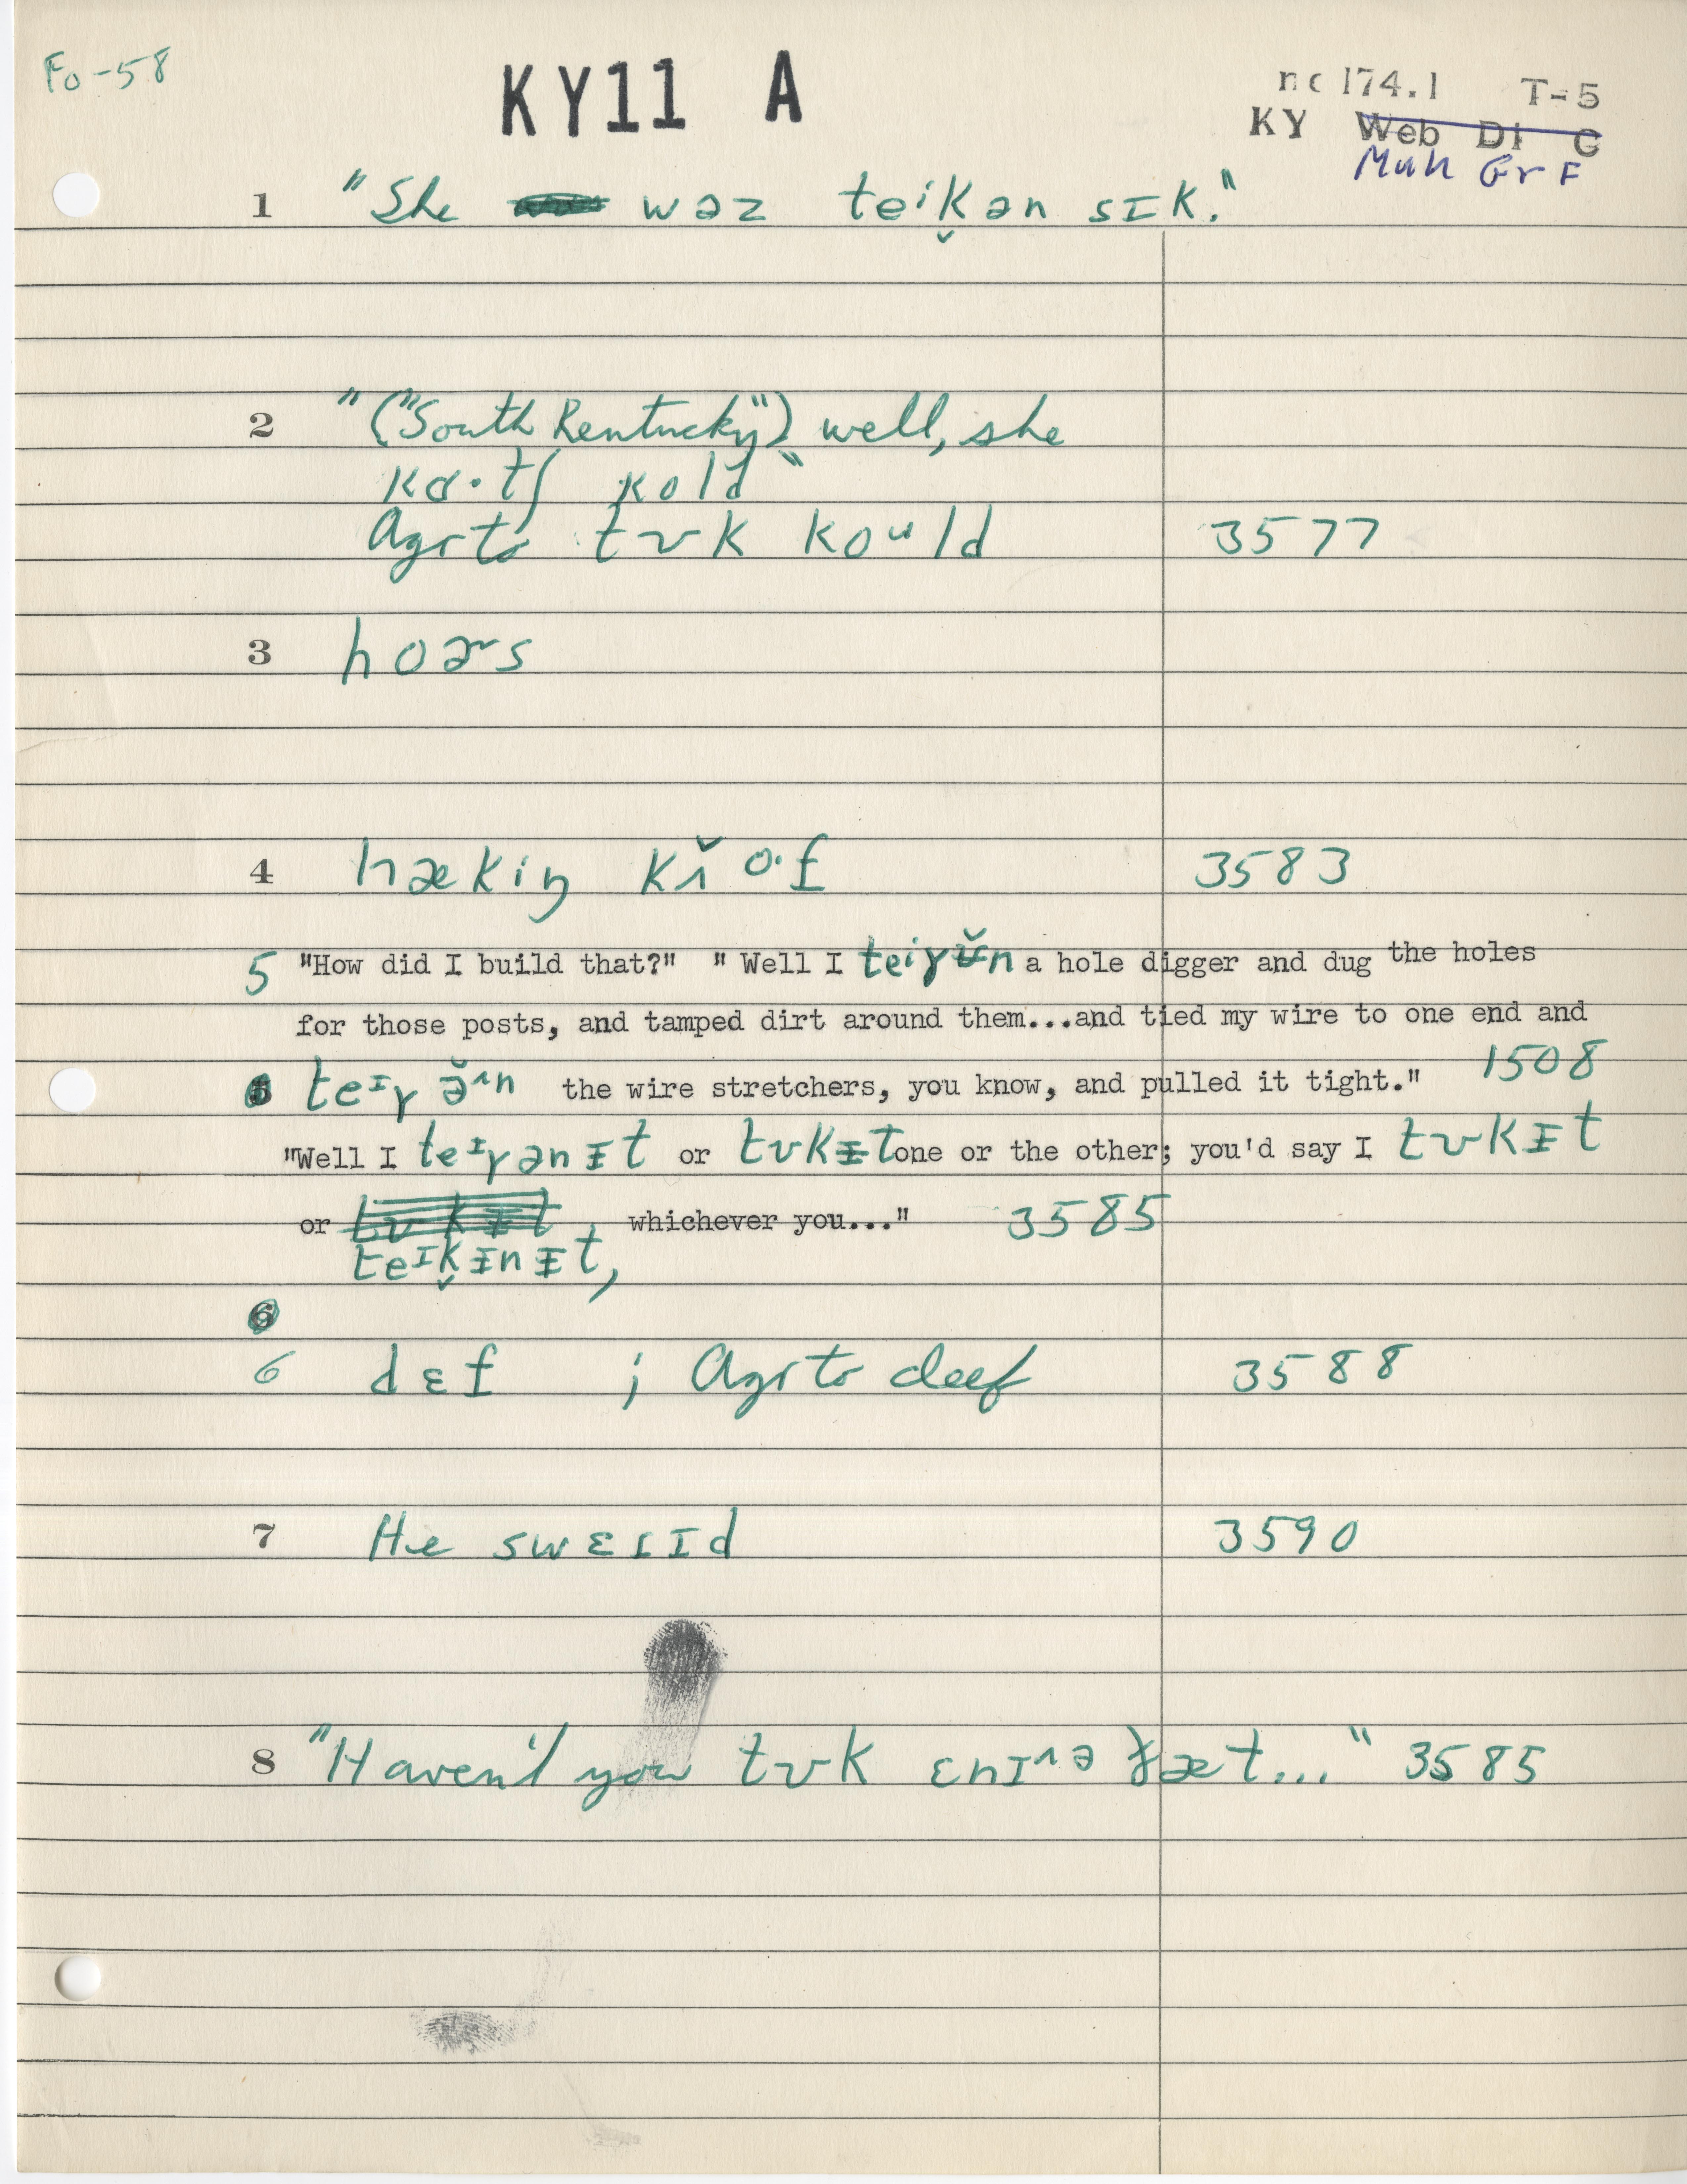 Fo-58
KY11 A
nc 174.1 T-5
KY Web Di C
Muh Gr F
1 "She wəz teⁱk̬ən sɪk."
2 "("South Kentucky") well, she
kɑ·tʃ kold"
Agrto tʊk koᵘld 3577
3 hoɚs
4 hækiŋ kɔ·f 3583
5 "How did I build that?" "Well I teiɣʉ̆n a hole digger and dug the holes
for those posts, and tamped dirt around them...and tied my wire to one end and
teᶦɣə̆ᶺn the wire stretchers, you know, and pulled it tight." 1508
"Well I teᶦɣənᵻt or tʊkᵻt one or the other; you'd say I tʊkᵻt
or tʊkᵻt, whichever you..." 3585
teᶦk̬ᵻnᵻt,
6
6 dɛf ; Agrto deef 3588
7 He swɛɪɪd 3590
8 "Haven't you tʊk ɛnɪᶺə ðæt..." 3585